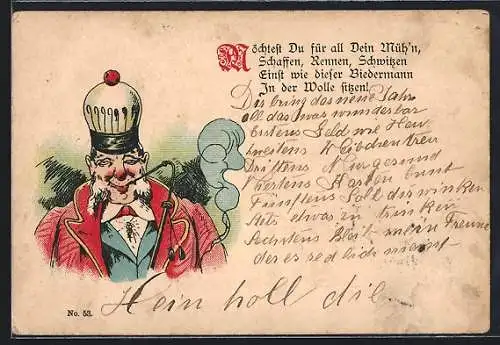 Möchtest Du für all Dein Müh'n,
Schaffen, Rennen, Schwitzen
Einst wie dieser Biedermann
In der Wolle sitzen!
Dir bring das neue Jahr
all das was wunderbar
Erstens Geld wie Heu
zweitens Weibchentreu
Drittens Nur gesund
Viertens Kasten bunt
Fünftens Soll dir winken
stets etwas zu trinken
Sechstens Bleib mein Freund
der es redlich meint
Hein holl die
No. 53.